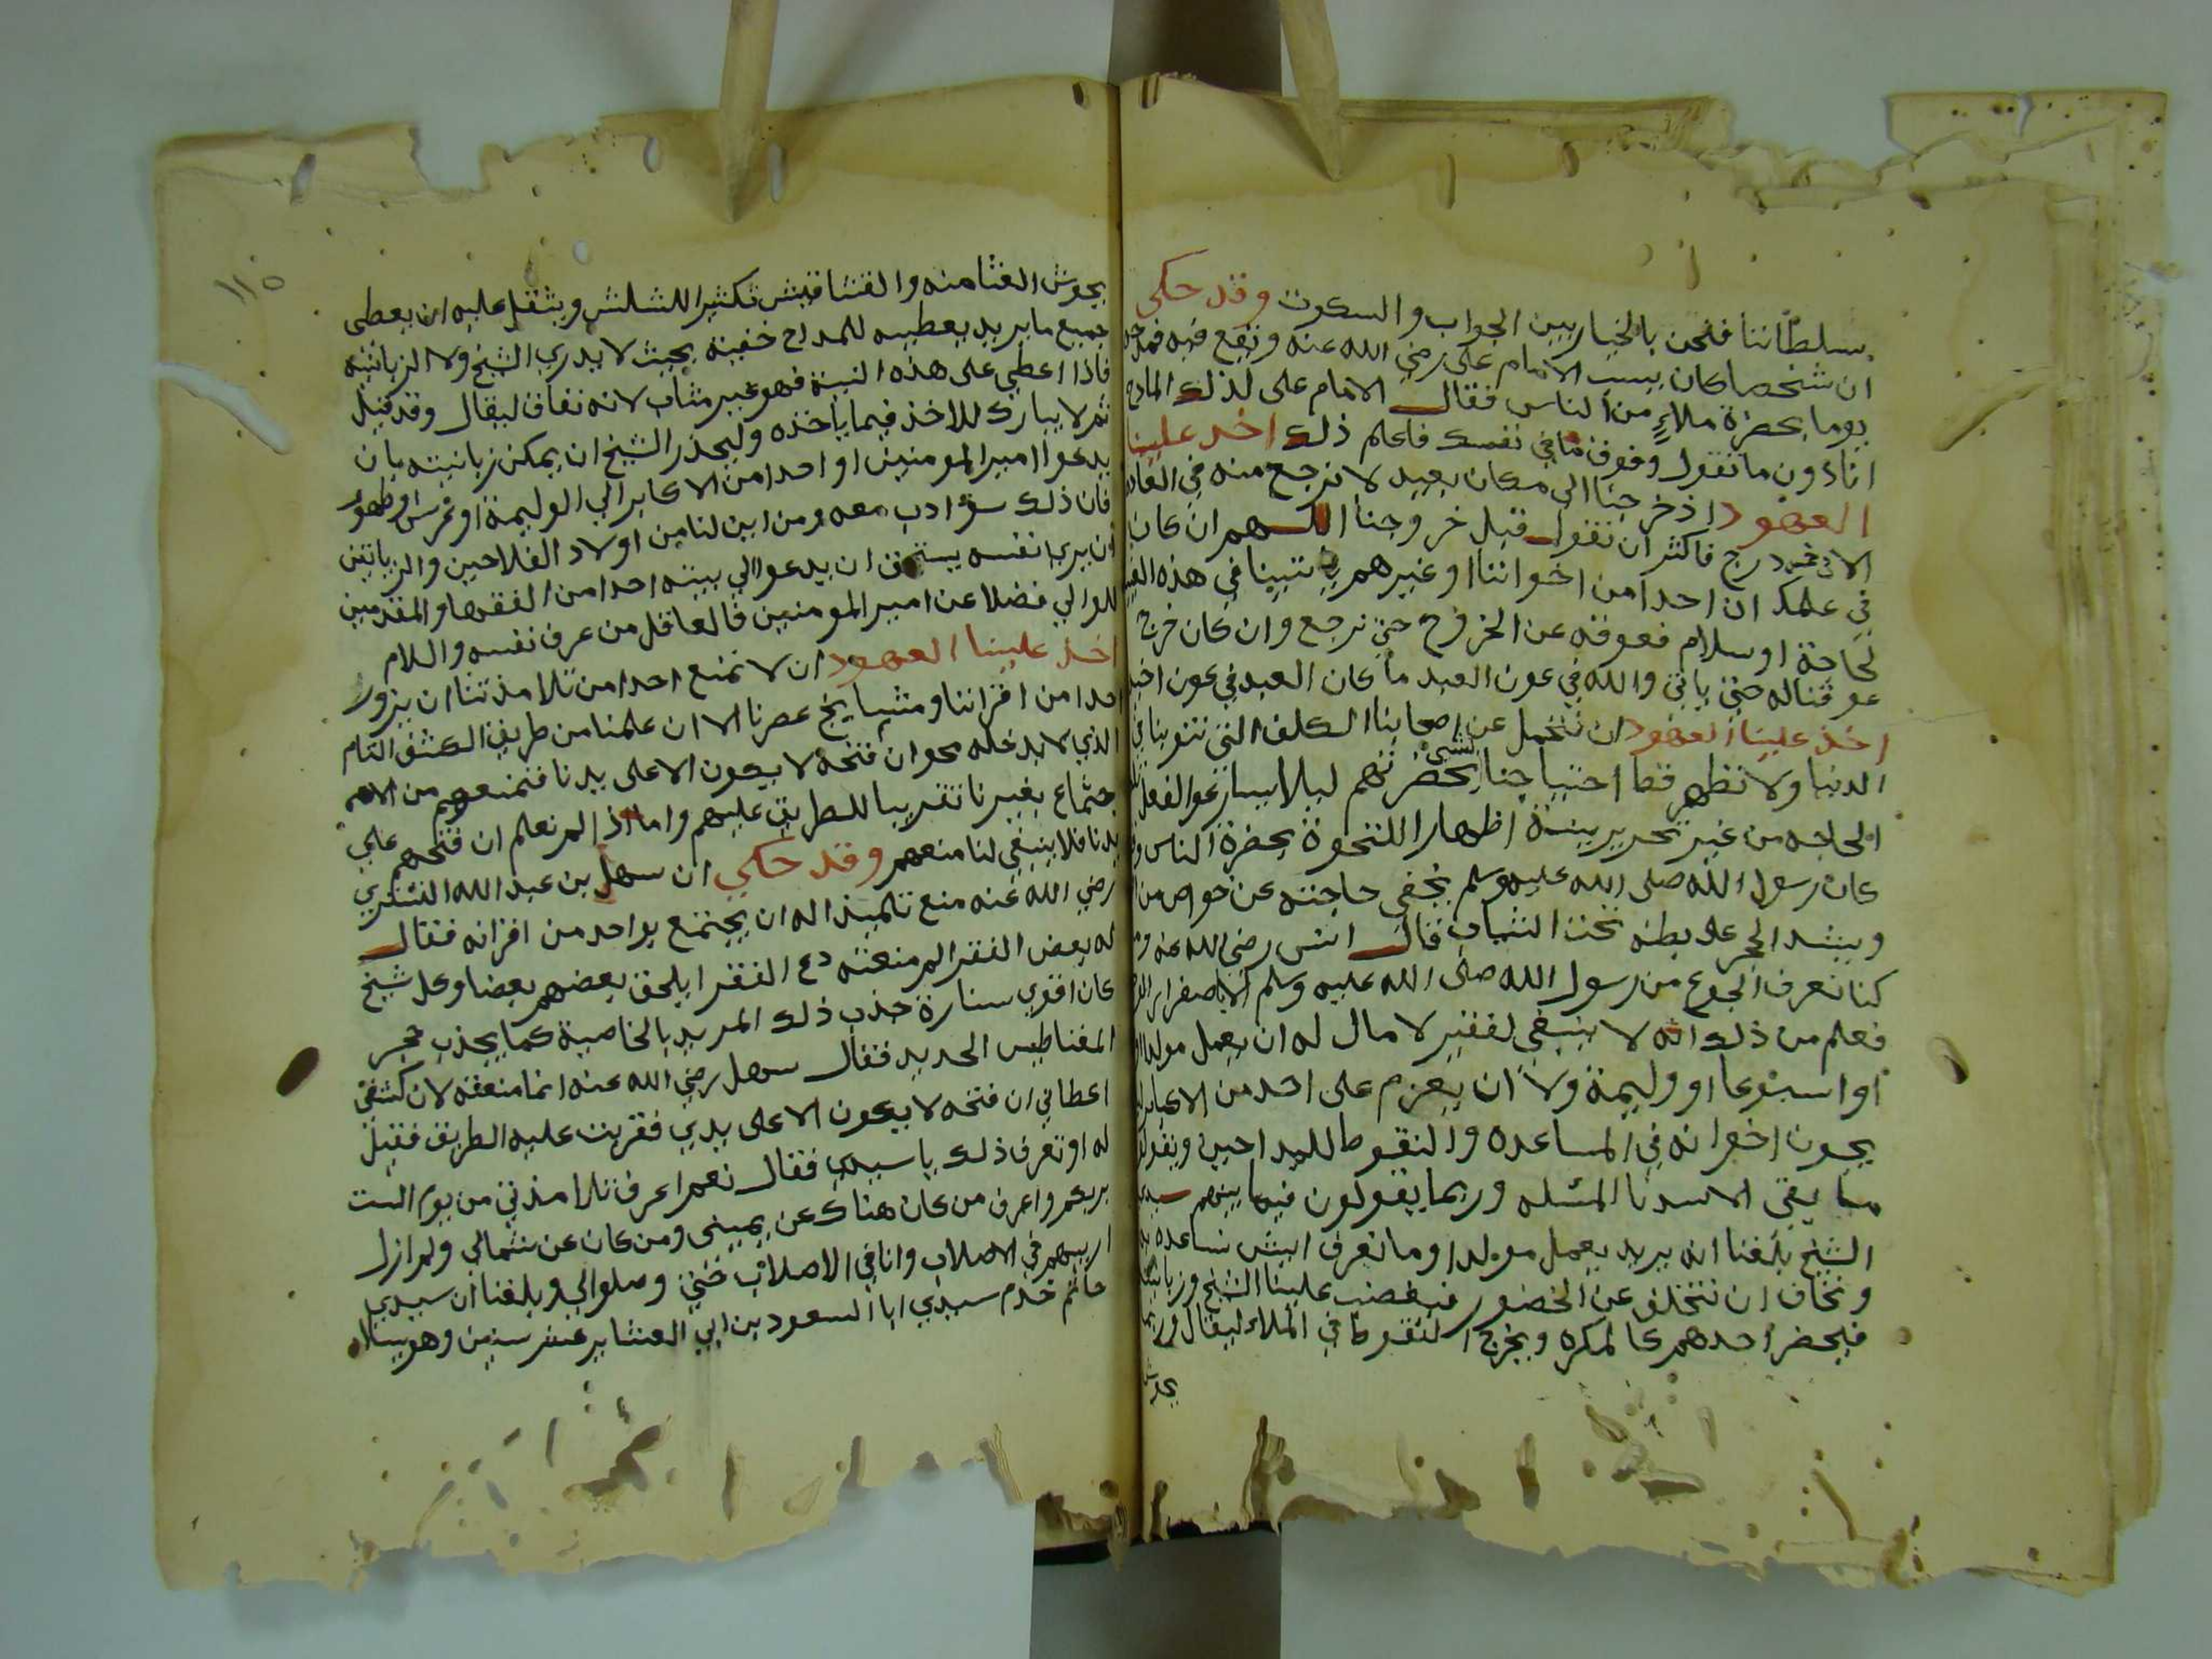 سلطاننا فنحن بالخيار بين الجواب والسكوت وقد حكى
ان شخصا كان يسب الامام على رضي الله عنه ويقع فيه فمدحه
يوما بحضرة ملاء من الناس فقال الامام على لذلك المادح
انا دون ما تقول وفوق ما في نفسك فاعلم ذلك اخذ علينا
العهود اذ خرجنا الى مكان بعيد لا نرجع منه في العادة
الا في نحو درج فاكثر ان نقول قبل خروجنا اللهم ان كان
في علمك ان احدا من اخواننا او غيرهم ياتينا في هذه
لحاجة او سلام فعوقه عن الخروج حتى نرجع وان كان خرج
عوقنا له حتى ياتي والله في عون العبد ما كان العبد في عون اخيه
اخذ علينا العهود ان نتحمل عن اصحابنا الكلف التي تنوبنا في
الدنيا ولا نظهر قط احتياجنا لشي بحضرتهم ليلا يسارعوا لفعل
الحاجه من غير تحرير بينة اظهارا للنخوة بحضرة الناس
كان رسول الله صلى الله عليه وسلم يخفى حاجته عن خواص من
ويشد الحجر على بطنه تحت الثياب قال انس رضي الله عنه
كنا نعرف الجوع من رسول الله صلى الله عليه وسلم الا باصفرار
فعلم من ذلك انه لا ينبغي لفقير لا مال له ان يعمل مولدا
او اسبوعا او وليمة ولا ان يعزم على احد من الاكابر
يجون اخوانه في المساعده والنقوط للمداحين ويقول
ما بقى الا سدنا المسله وربما يقولون فيما بينهم سيدي
الشيخ بلغنا انه يريد يعمل مولدا وما نعرف ايش نساعده
ونخاف ان نتخلف عن الحضور فيغضب علينا الشيخ
فيحضر احدهم كالمكره ويخرج النقوط في الملاء ليقال
١١٥
جميع ما يريد يعطيه للمداح خفية بحيث لا يدري الشيخ ولا الزبانية
فاذا اعطى على هذه النية فهو غير مثاب لانه نفاق ليقال وقد قيل
ثم لا يبارك للاخذ فيما ياخذه وليحذر الشيخ ان يمكن زبانيته بان
يدعوا امير المومنين او احدا من الاكابر الي الوليمة او عرس او طهور
فان ذلك سوء ادب معه ومن اين لنا من اولاد الفلاحين
ان يرى نفسه يستحق ان يدعوا الي بيته احدا من الفقها والمقدمين
للوالي فضلا عن امير المومنين فالعاقل من عرف نفسه والسلام
اخذ علينا العهود ان لا نمنع احدا من تلامذتنا ان يزور
احدا من اقراننا ومشايخ عصرنا الا ان علمنا من طريق الكشف التام
الذي لا يدخله محو ان فتحه لا يكون الا على يدنا فنمنعهم من الا
جتماع بغيرنا تقريبا للطريق عليهم واما اذا لم نعلم ان فتحهم علي
يدنا فلا ينبغي لنا منعهم وقد حكي ان سهل بن عبد الله التستري
رضي الله عنه منع تلميذا له ان يجتمع بواحد من اقرانه فقال
له بعض الفقرا لم منعته دع الفقرا يلحق بعضهم بعضا وكل شيخ
كان اقوي سنارة جذب ذلك المريد بالخاصية كما يجذب حجر
المغناطيس الحديد فقال سهل رضي الله عنه انما منعته لان كشفي
اعطاني ان فتحه لا يكون الا على يدي فقربت عليه الطريق فقيل
له او تعرف ذلك يا سيدي فقال نعم اعرف تلامذتي من يوم الست
بربكم واعرف من كان هناك عن يميني ومن كان عن شمالي ولم ازل
اربيهم في الاصلاب وانا في الاصلاب حتى وصلوا الي وبلغنا ان سيدي
حاتم خدم سيدي ابا السعود بن ابي العشاير عشر سنين وهو يساله